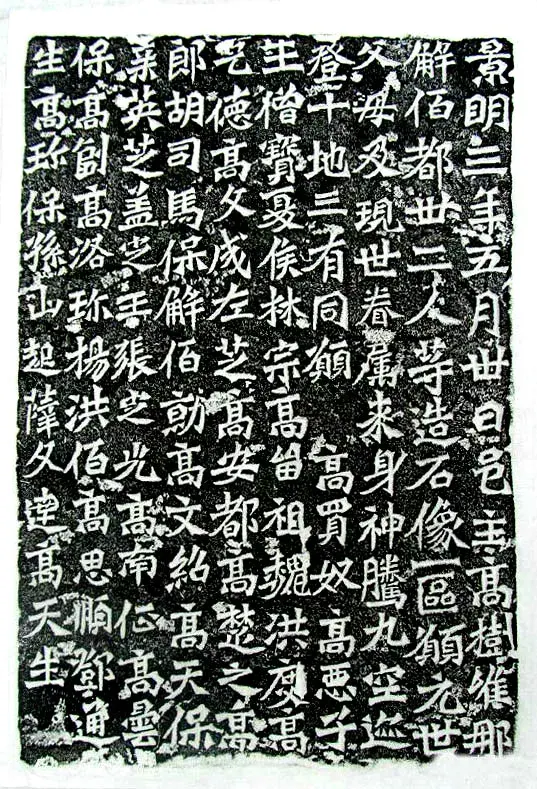 景明三年五月卅日邑主高樹維那
解佰都卅二人等造石像一區願元世
父母及現世眷屬來身神騰九空迹
登十地三有同願 高買奴 高惡子
王僧寶夏侯林宗高留祖魏洪度高
乞德高文成左芝高安都高楚之高
郎胡司馬保解佰勍高文紹高天保
英芝盖定王張定光高南征高曇
保高副高洛珍楊洪佰高思順鄧通
生高珍保孫山起薛文達高天生